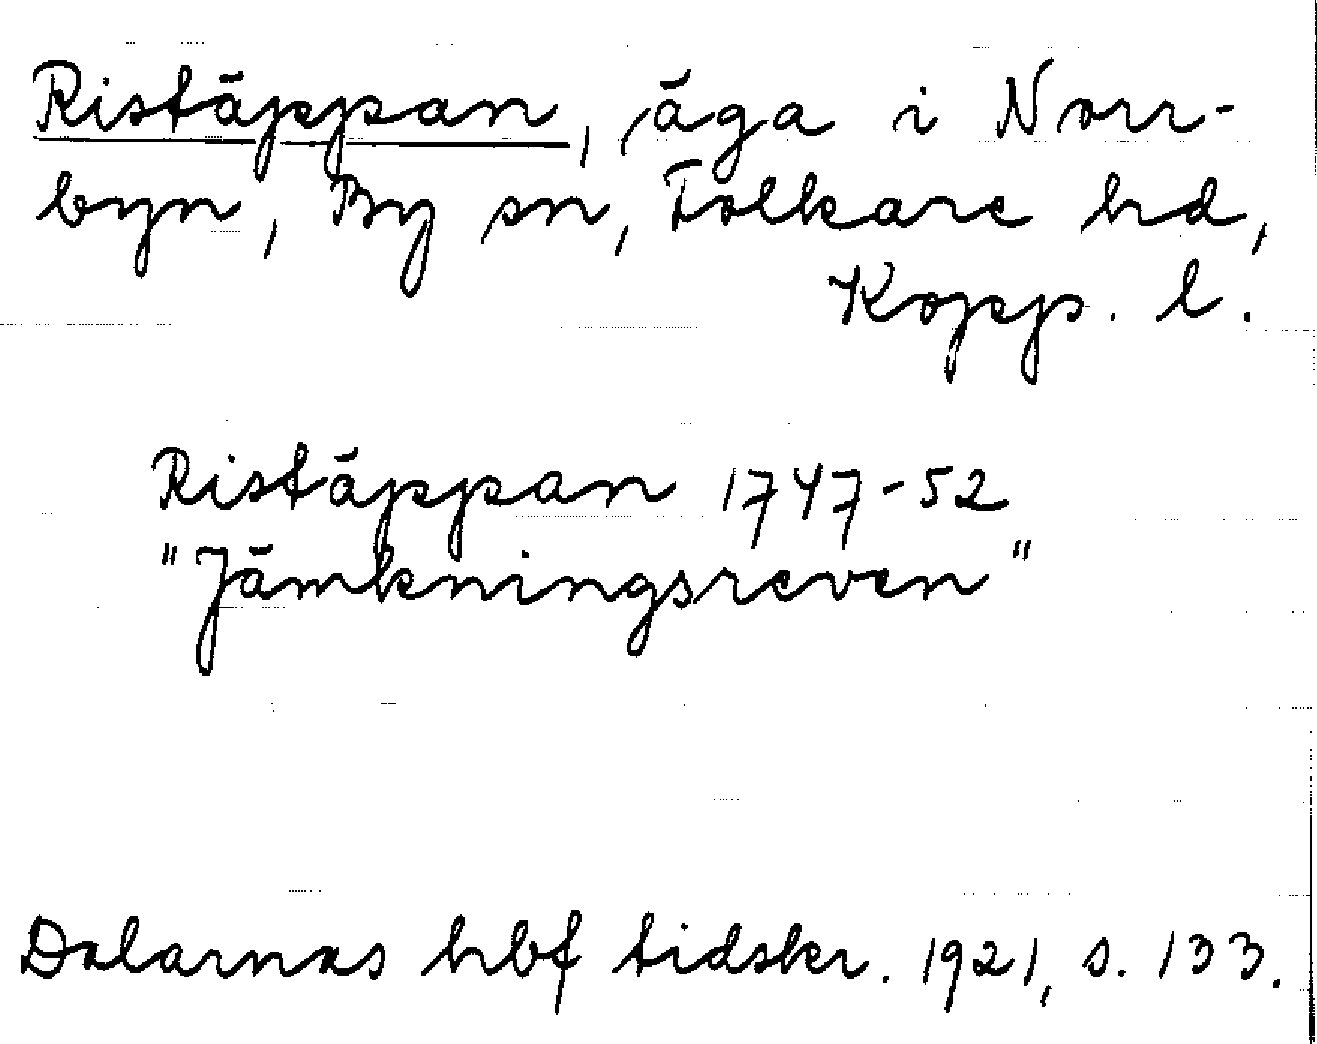 Ristäppan, äga i Norr-
byn, By sn, Folkare hd,
Kopp. l.
Ristäppan 1747-52
"Jämkningsreven"
Dalarnas hbf tidskr. 1921, s. 133.